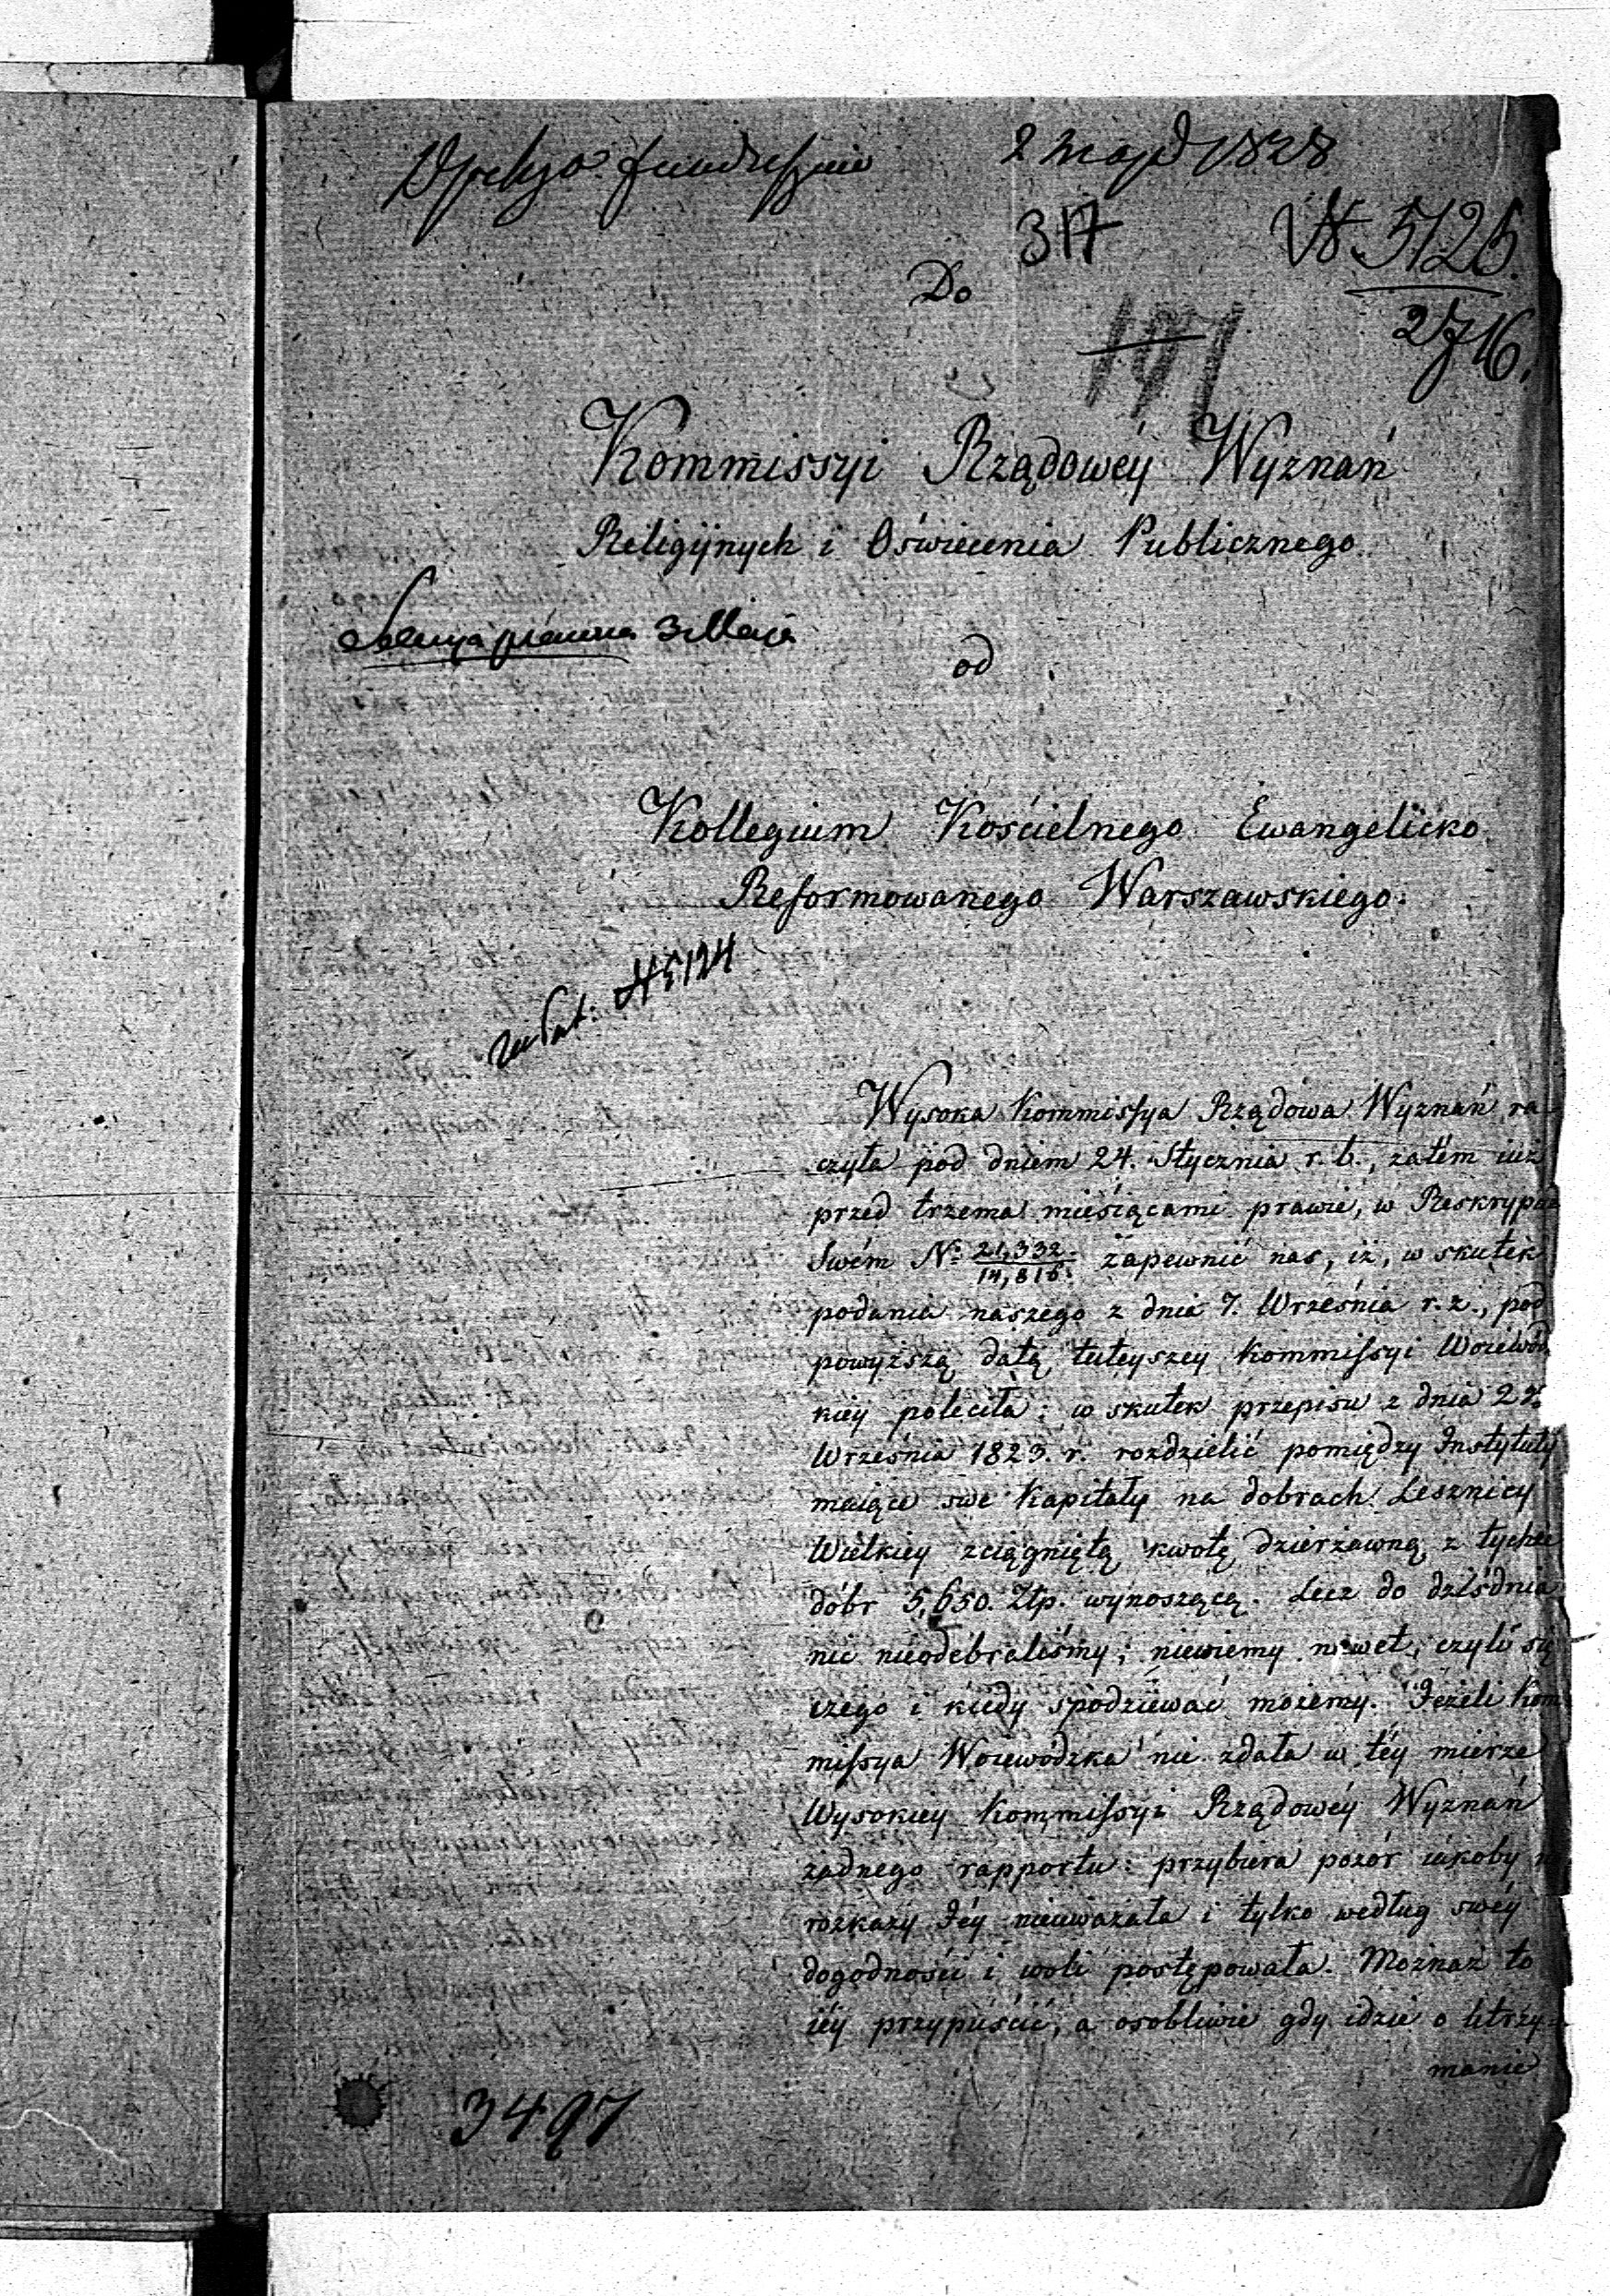 2 maja 1828
317
N 5125.
2716.
Do
197
Kommissyi Rządowéy Wyznań
Religiynych i Oświecenia Publicznego
3 Maja
od
Kollegium Kościelnego Ewangelicko
Reformowanego Warszawskiego.
N 5124
Wysoka Kommissya Rządowa Wyznań ra-
czyła pod dniem 24. Stycznia r. b., zatém iuż
przed trzema miesiącami prawie, w Reskrypcie
Swém No 21,332. / 14,816. zapewnić nas, iż, w skutek
podania naszego z dnia 7. Września r. z., pod
powyższą datą tuteyszey Kommissyi Woiewódz
kiey poleciła: w skutek przepisu z dnia 27.
Września 1823. r. rozdzielić pomiędzy Instytuty
maiące swe Kapitały na dobrach Lesznicy
Wielkiey zciągniętą kwotę dzierżawną z tychże
dóbr 5,650. Złp. wynoszącą. Lecz do dziśdnia
nic nieodebraliśmy; niewiemy nawet, czyli się
czego i kiedy spodziewać możemy. Jeżeli Kom-
missya Woiewódzka nie zdała w téy mierze
Wysokiey Kommissyi Rządowéy Wyznań
żadnego rapportu: przybiera pozór iakoby
rozkazy Jéy nieuważała i tylko według swéy
dogodności i woli postępowała. Możnaż to
iéy przypuścić, a osobliwie gdy idzie o utrzy-
manie
3497